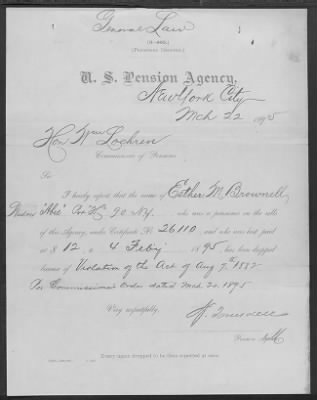 General Law
(3-402.)
U. S. Pension Agency,
New York City
Mch 22 1895
Hon Wm Lochren
Commissioner of Pensions
Sir:
I hereby report that the name of Esther M. Brownell
Widow "Abie"
who was a pensioner on the rolls
of this Agency, under Certificate No. 26110 and who was last paid
at $ 12, to 4 Feby 1895 has been dropped
because of Violation of the Act of Aug 7th 1882
Per Commissioners Order dated Mch 20 1895
Very respectfully,
Pension Agent
Every name dropped to be thus reported at once.